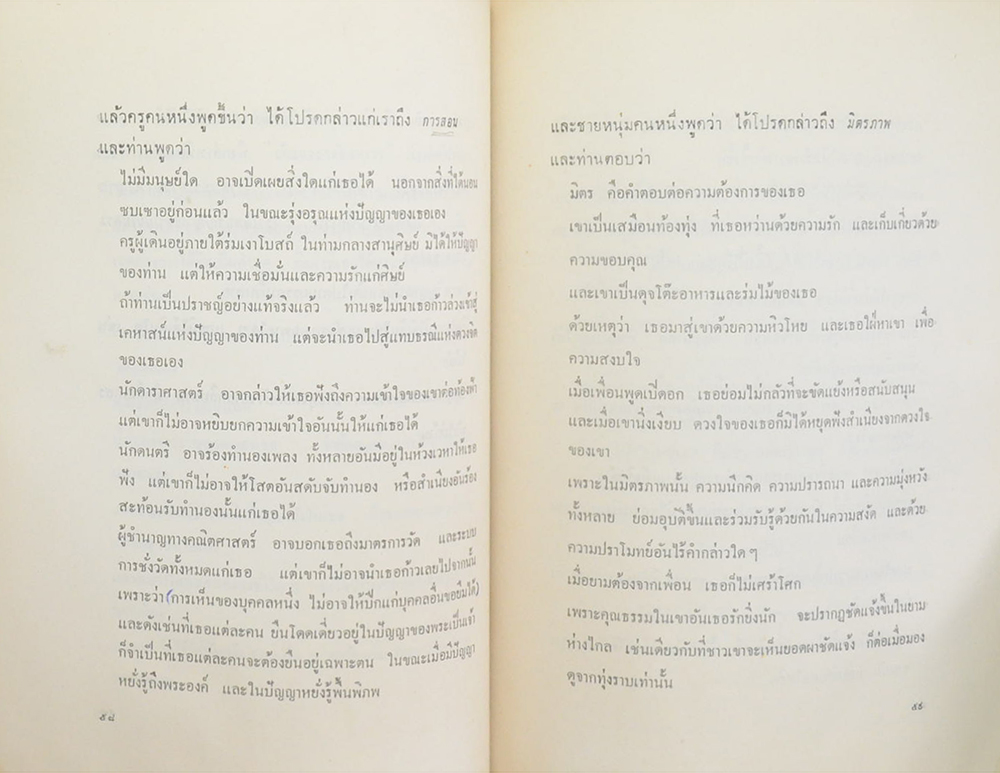 แล้วครูคนหนึ่งพูดขึ้นว่า ได้โปรดกล่าวแก่เราถึง การสอน
และท่านพูดว่า
ไม่มีมนุษย์ใด อาจเปิดเผยสิ่งใดแก่เธอได้ นอกจากสิ่งที่ได้นอน
ซบเซาอยู่ก่อนแล้ว ในขณะรุ่งอรุณแห่งปัญญาของเธอเอง
ครูผู้เดินอยู่ภายใต้ร่มเงาโบสถ์ ในท่ามกลางสานุศิษย์ มิได้ให้ปัญญา
ของท่าน แต่ให้ความเชื่อมั่นและความรักแก่ศิษย์
ถ้าท่านเป็นปราชญ์อย่างแท้จริงแล้ว ท่านจะไม่นำเธอก้าวล่วงเข้าสู่
เคหาสน์แห่งปัญญาของท่าน แต่จะนำเธอไปสู่แทบธรณีแห่งดวงจิต
ของเธอเอง
นักดาราศาสตร์ อาจกล่าวให้เธอฟังถึงความเข้าใจของเขาต่อท้องฟ้า
แต่เขาก็ไม่อาจหยิบยกความเข้าใจอันนั้นให้แก่เธอได้
นักดนตรี อาจร้องทำนองเพลง ทั้งหลายอันมีอยู่ในห้วงเวหาให้เธอ
ฟัง แต่เขาก็ไม่อาจให้โสตอันสดับจับทำนอง หรือสำเนียงอันร้อง
สะท้อนรับทำนองนั้นแก่เธอได้
ผู้ชำนาญทางคณิตศาสตร์ อาจบอกเธอถึงมาตรการวัด และระบบ
การชั่งวัดทั้งหมดแก่เธอ แต่เขาก็ไม่อาจนำเธอก้าวเลยไปจากนั้น
เพราะว่า(การเห็นของบุคคลหนึ่ง ไม่อาจให้ปีกแก่บุคคลอื่นขอยืมได้)
และดังเช่นที่เธอแต่ละคน ยืนโดดเดี่ยวอยู่ในปัญญาของพระเป็นเจ้า
ก็จำเป็นที่เธอแต่ละคนจะต้องยืนอยู่เฉพาะตน ในขณะเมื่อมีปัญญา
หยั่งรู้ถึงพระองค์ และในปัญญาหยั่งรู้พื้นพิภพ
๕๘
และชายหนุ่มคนหนึ่งพูดว่า ได้โปรดกล่าวถึง มิตรภาพ
และท่านตอบว่า
มิตร คือคำตอบต่อความต้องการของเธอ
เขาเป็นเสมือนท้องทุ่ง ที่เธอหว่านด้วยความรัก และเก็บเกี่ยวด้วย
ความขอบคุณ
และเขาเป็นดุจโต๊ะอาหารและร่มไม้ของเธอ
ด้วยเหตุว่า เธอมาสู่เขาด้วยความหิวโหย และเธอใฝ่หาเขา เพื่อ
ความสงบใจ
เมื่อเพื่อนพูดเปิดอก เธอย่อมไม่กลัวที่จะขัดแย้งหรือสนับสนุน
และเมื่อเขานิ่งเงียบ ดวงใจของเธอก็มิได้หยุดฟังสำเนียงจากดวงใจ
ของเขา
เพราะในมิตรภาพนั้น ความนึกคิด ความปรารถนา และความมุ่งหวัง
ทั้งหลาย ย่อมอุบัติขึ้นและร่วมรับรู้ด้วยกันในความสงัด และด้วย
ความปราโมทย์อันไร้คำกล่าวใด ๆ
เมื่อยามต้องจากเพื่อน เธอก็ไม่เศร้าโศก
เพราะคุณธรรมในเขาอันเธอรักยิ่งนัก จะปรากฏชัดแจ้งขึ้นในยาม
ห่างไกล เช่นเดียวกับที่ชาวเขาจะเห็นยอดผาชัดแจ้ง ก็ต่อเมื่อมอง
ดูจากทุ่งราบเท่านั้น
๕๙